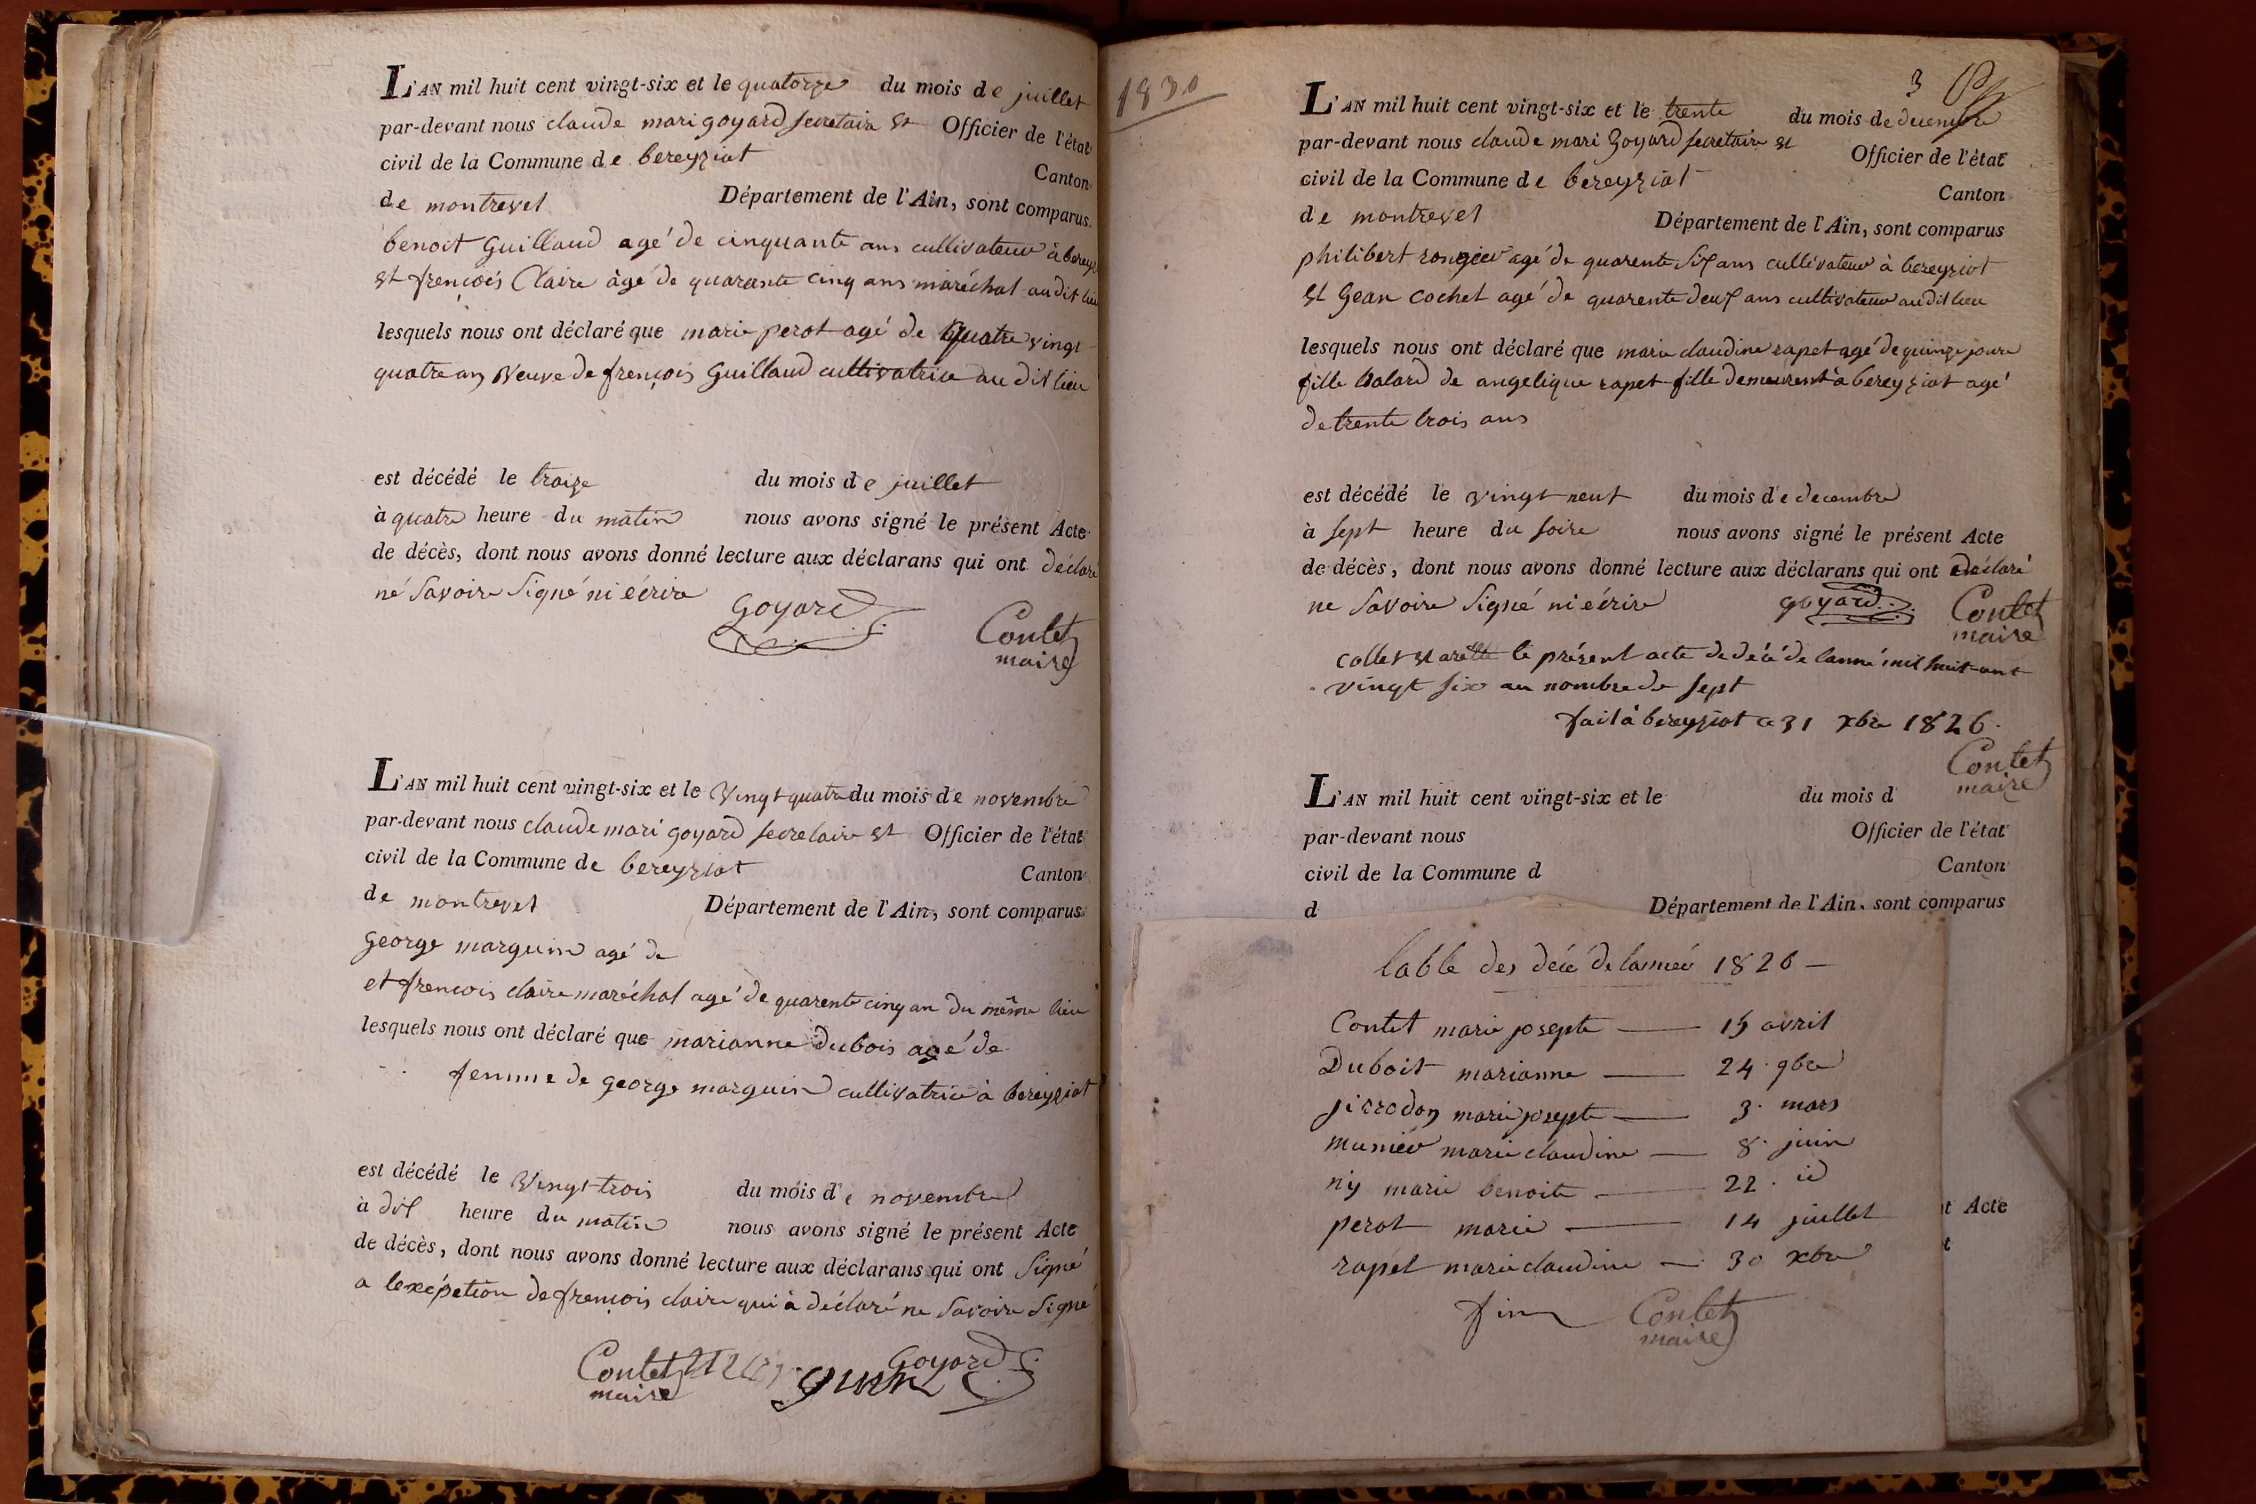 L'AN mil huit cent vingt-six et le quatorze du mois de juillet
par-devant nous claude mari goyard secretaire et Officier de l'état
civil de la Commune de bereyziat Canton
de montrevel Département de l'Ain, sont comparus
benoit Guillaud agé de cinquante ans cultivateur à bereyz
et françois Claire àgé de quarante cinq ans maréchal au dit lieu
lesquels nous ont déclaré que marie perot agé de quatre vingt
quatre an veuve de françois Guillaud cultivatrice au dit lieu
est décédé le traize du mois de juillet
à quatre heure du matin nous avons signé le présent Acte
de décès, dont nous avons donné lecture aux déclarans qui ont déclaré
né savoire signé ni eécrire
Goyard
Contet
maire
L'AN mil huit cent vingt-six et le vingt quatre du mois de novembre
par-devant nous claude mari goyard secretaire et Officier de l'état
civil de la Commune de bereyziat Canton
de montrevel Département de l'Ain, sont comparus
george marguin agé de
et françois claire maréchal agé de quarente cinq an du même lieu
lesquels nous ont déclaré que marianne Dubois agé de
femme de george marguin cultivatrice à bereyziat
est décédé le vingt-trois du mois de novembre
à dix heure du matin nous avons signé le présent Acte
de décès, dont nous avons donné lecture aux déclarans qui ont signé
a lexépetion de françois claire qui à déclaré ne savoire signé
Contet Goyard
maire
1830
3
L'AN mil huit cent vingt-six et le trente du mois de decembre
par-devant nous claude mari Goyard secretaire et Officier de l'état
civil de la Commune de bereyziat Canton
de montrevel Département de l'Ain, sont comparus
philibert rongier agé de quarente six ans cultivateur à bereyziat
et Gean cochet agé de quarente deux ans cultivateur au dit lieu
lesquels nous ont déclaré que marie claudine rapet agé de quinze joure
fille batard de angelique rapet fille demeurent à bereyziat agé
de trente trois ans
est décédé le vingt neuf du mois de decembre
à sept heure du soire nous avons signé le présent Acte
de décès, dont nous avons donné lecture aux déclarans qui ont déclaré
ne savoire signé ni eécrire goyard Contet
maire
collet et arette le présent acte de décé de lanné mil huit cent
vingt six au nombre de sept
fait à bereyziat ce 31 xbre 1826
Contet
maire
L'AN mil huit cent vingt-six et le du mois d
par-devant nous Officier de l'état
civil de la Commune d Canton
d Département de l'Ain, sont comparus
table des décé de lanneé 1826
Contet marie josepte 15 avril
Duboit marianne 24 9bre
pirrodon marie josepte 3 mars
munier marie claudine 8 juin
ny marie benoite 22 id
perot marie 14 juillet
rapet marie claudine 30 xbre
fin Contet
maire
t Acte
t